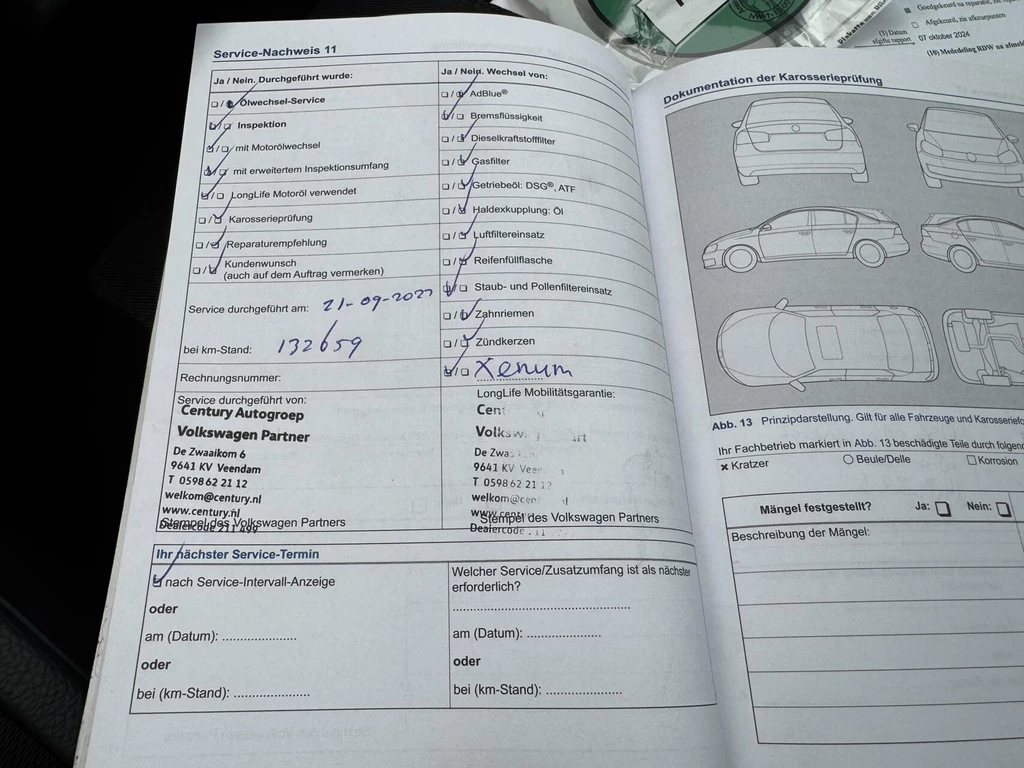 Service-Nachweis 11
Ja / Nein. Durchgeführt wurde:
Ölwechsel-Service
Inspektion
mit Motorölwechsel
mit erweitertem Inspektionsumfang
LongLife Motoröl verwendet
Karosserieprüfung
Reparaturempfehlung
Kundenwunsch
(auch auf dem Auftrag vermerken)
Service durchgeführt am: 21-09-202
bei km-Stand: 132659
Rechnungsnummer:
Service durchgeführt von:
Century Autogroep
Volkswagen Partner
De Zwaaikom 6
9641 KV Veendam
T 0598 62 21 12
welkom@century.nl
www.century.nl
Dealercode 211 499
Stempel des Volkswagen Partners
Ja / Nein. Wechsel von:
AdBlue®
Bremsflüssigkeit
Dieselkraftstofffilter
Gasfilter
Getriebeöl: DSG®, ATF
Haldexkupplung: Öl
Luftfiltereinsatz
Reifenfüllflasche
Staub- und Pollenfiltereinsatz
Zahnriemen
Zündkerzen
Xenum
LongLife Mobilitätsgarantie:
Cent
Volksw
De Zwa
9641 KV Veen
T 0598 62 21 12
welkom@cen
www.centu
Dealercode
Stempel des Volkswagen Partners
Ihr nächster Service-Termin
nach Service-Intervall-Anzeige
oder
am (Datum): ....................
oder
bei (km-Stand): ....................
Welcher Service/Zusatzumfang ist als nächster
erforderlich?
am (Datum): ....................
oder
bei (km-Stand): ....................
Goedgekeurd na reparatie, zie
Afgekeurd, zie afkeurpunten
(3) Datum
afgifte rapport 07 oktober 2024
(10) Mededeling RDW na afmel
Dokumentation der Karosserieprüfung
Abb. 13 Prinzipdarstellung. Gilt für alle Fahrzeuge und Karosseriefo
Ihr Fachbetrieb markiert in Abb. 13 beschädigte Teile durch folgend
Kratzer Beule/Delle Korrosion
Mängel festgestellt? Ja: Nein:
Beschreibung der Mängel: